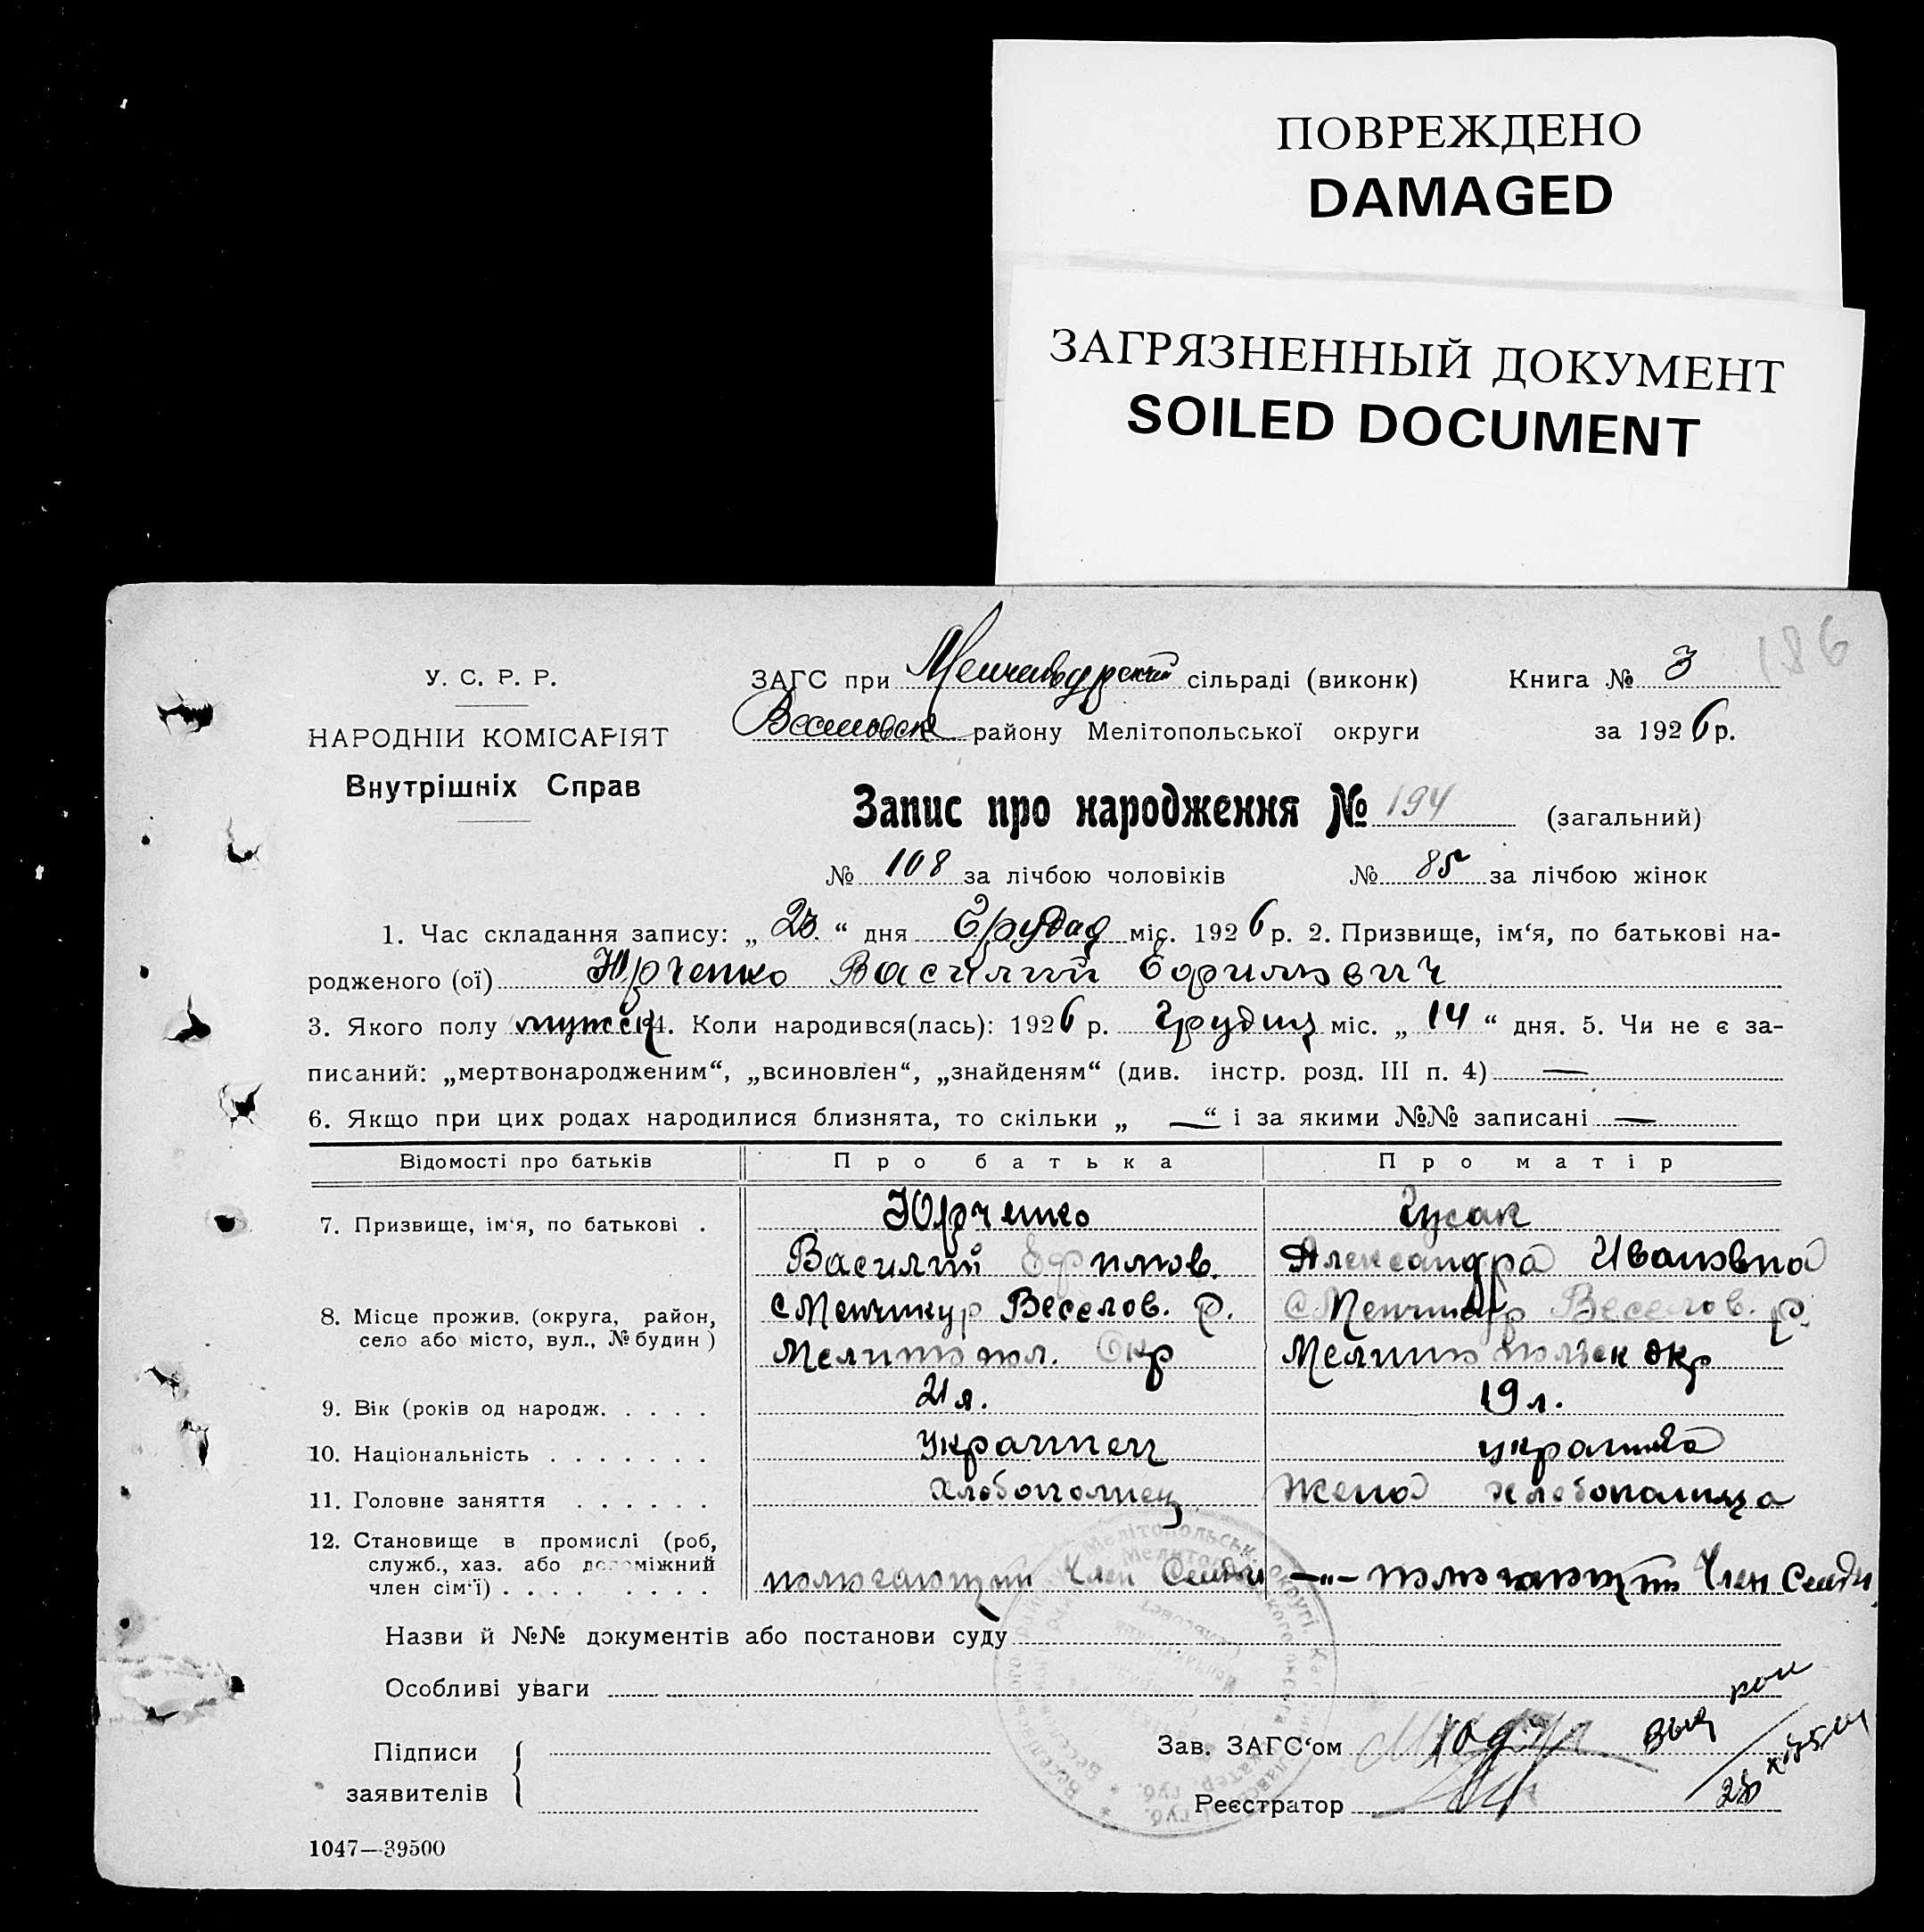 ПОВРЕЖДЕНО
DAMAGED
ЗАГРЯЗНЕННЫЙ ДОКУМЕНТ
SOILED DOCUMENT
186
У. С. Р. Р.
НАРОДНІЙ КОМІСАРІЯТ
Внутрішніх Справ
ЗАГС при Менчикурский сільраді (виконк) Книга № 3
Веселовск району Мелітопольської округи за 1926 р.
Запис про народження № 194 (загальний)
№ 108 за лічбою чоловіків № 85 за лічбою жінок
1. Час складання запису: „ 23 “ дня Грудад міс. 1926 р. 2. Призвище, ім‘я, по батькові на-
родженого (ої) Юрченко Василий
3. Якого полу 4. Коли народився(лась): 1926 р. Грудиц міс. „ 14 “ дня. 5. Чи не є за-
писаний: „мертвонародженим“, „всиновлен“, „знайденям“ (див. інстр. розд. III п. 4) —
6. Якщо при цих родах народилися близнята, то скільки „ — “ і за якими №№ записані —
Відомості про батьків Про батька Про матір
7. Призвище, ім‘я, по батькові . Юрченко Гусак
Василий Ефимов. Александра Ивановна
8. Місце прожив. (округа, район, село або місто, вул., № будин) с Менчикур Веселов. р. с Менчикур Веселов. р.
Мелитопол. Окр Мелитопольск окр
9. Вік (років од народж. . . . . 21 л. 19 л.
10. Національність . . . . . . . Украинец украинка
11. Головне заняття . . . . . . Хлебопашец Жена хлебопашца
12. Становище в промислі (роб,
служб., хаз. або допоміжний
член сім‘ї) . . . . . . . . помогающий Член Семьи —„— помогающий Член Семьи
Назви й №№ документів або постанови суду
Особливі уваги
Підписи
заявителів
Зав. ЗАГС‘ом
Реєстратор
1047—39500